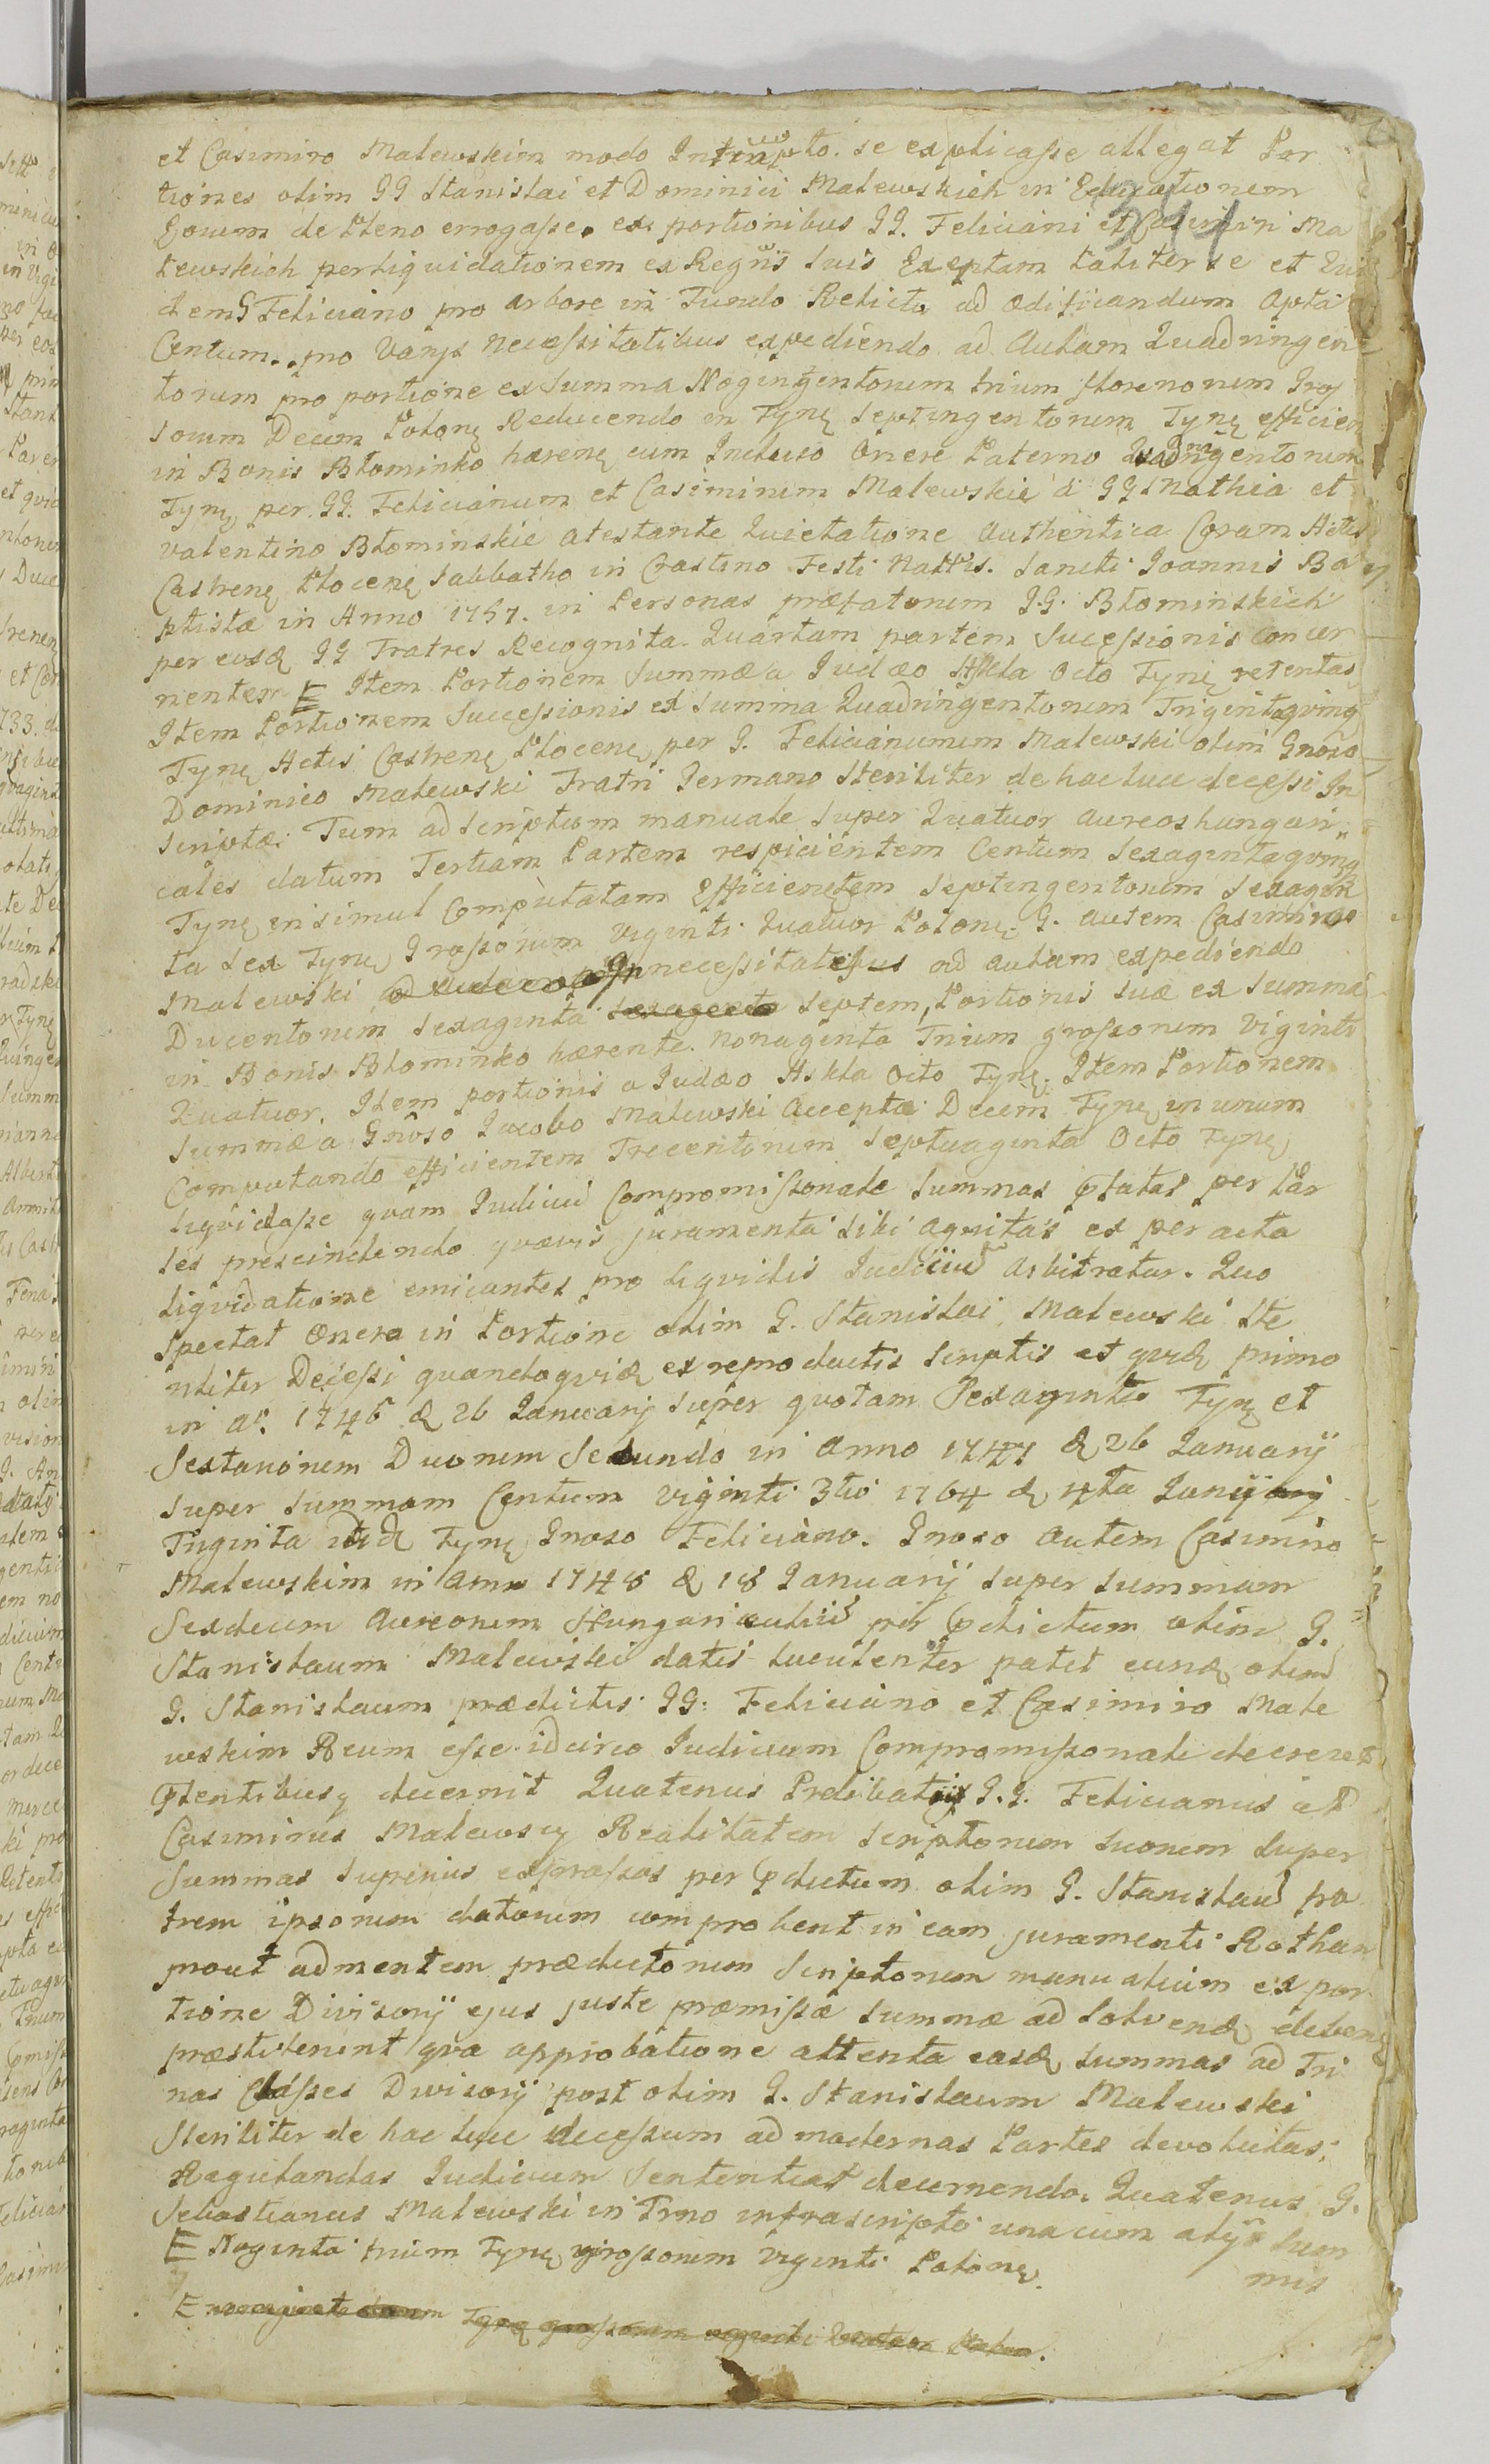 et Casimiro Malewskim modo Infrapto. se explicasse allegat Por
tiones olim GG Stanislai et Dominici Malewskich in Educationem
Eorum de Pleno errogasse. ex portionibus GG. Feliciani et Casimiri Ma
lewskich per liquidationem ex Regris suis Exeptam taliter se et Qui
dem G Feliciano pro arbore in Fundo Relicto ad ædificandum Apta
Centum.. pro Varys necessitatibus expediendo ad Aulam Quadringen
torum pro portione ex Summa Nogingentorum trium florenorum Gros
sorum Decem Polonę Reducendo in Tynę Septingentorum Tynę efficien
in Bonis Błominko hærenę cum Incluso Onere Paterno Quadringentorum
Tynę per GG. Felicianum et Casimirum Malewskie a GG Mathia et
Valentino Błominskie atestante Quietatione Authentica Coram Actis
Castrenę Plocenę Sabbatho in Crastino Festi Nattis. Sancti Joannis Ba
ptistæ in Anno 1757. in Personas præfatorum GG. Błominskich
per eosd GG Fratres Recognita. Quartam partem Sucessionis Concer
nentem E Item Portionem Summæ a Judæo Hskla Octo Tynę retentas
Item Portionem Successionis ex Summa Quadringentorum Trigintaquinq
Tynę Actis Castrenę Plocenę per G. Felicianumum Malewski olim Gnoso
Dominico Malewski Fratri Germano Steriliter de hac luce decessi In
scriptæ. Tum ad scriptum manuale super Quatuor aureos hungari„
cales datum Tertiam Partem respicientem Centum Sexagintaquinq
Tynę insimul Computatam Efficienętem Septingentorum Sexagin
ta sex Tynę Grossorum viginti Quatuor Polonę. G. autem Casimiro
Malewski In necessitatibus ad aulam expediendo
Ducentorum Sexaginta sexaginta Septem, Portionis suæ ex Summa
in Bonis Błominko hærente. nonaginta Trium grossorum Viginti
Quatuor. Item portionis a Judæo Hskla Octo Tynę. Item Portionem
Summæ a Gnoso Jacobo Malewski Accepta Decem Tynę in unum
Computando efficientem Trecentorum Septuaginta Octo Tynę
liqvidasse quam Judicium Compromissionale Summas Pfatas per Par
tes prescindendo quævis juramenta sibi agnitas ex per acta
liqvidatione emicantes pro liqvidis Judicium Arbitratur. Quo
Spectat Onera in Portione olim G. Stanislai Malewski Ste
riliter Decessi quandoquid ex reproductis scriptis et quid primo
in Ao. 1746 d 26 January super quotam Sexaginta Tynę et
Sextarionem Duorum Secundo in Anno 1747 d 26 January
super Summam Centum viginti 3tio 1764 d 4ta Juny
Triginta itid Tynę Gnoso Feliciano. Gnoso autem Casimiro
Malewskim in Anno 1748 d 18 January super summam
Sexdecim Aureorum Hungaricalium per Pdictum olim G.
Stanislaum Malewski datis luculenter patet eund olim
G. Stanislaum prædictis GG. Feliciano et Casimiro Male
wskim Reum esse. idcirco Judicium Compromissionale decreret
Ptentibusq decernit Quatenus Prelibatij G.G. Felicianus et
Casimirus Malewscy Realitatem scriptorum suorum super
Summas superius expressas per Pdictum olim G. Stanislaum fra
trem ipsorum datorum comprobent in eam juramenti Rotham
prout ad mentem prædictorum Scriptorum manualium ex por
tione Divisory ejus juste præmissæ Summæ ad Solvend debenę
præstiterint qva approbatione attenta easd Summas ad Tri
nas Classes Divisory post olim G. Stanislaum Malewski
Steriliter de hac luce decessum ad modernas Partes devolutas,
Regulandas Judicium Sententiat decernendo. Quatenus G.
Sebastianus Malewski in Trno infrascripto una cum alys Sum
mis
E Noginta trium Tynę grossorum Viginti Polonę.
E Tynę grossorum viginti Quatuor Polon.